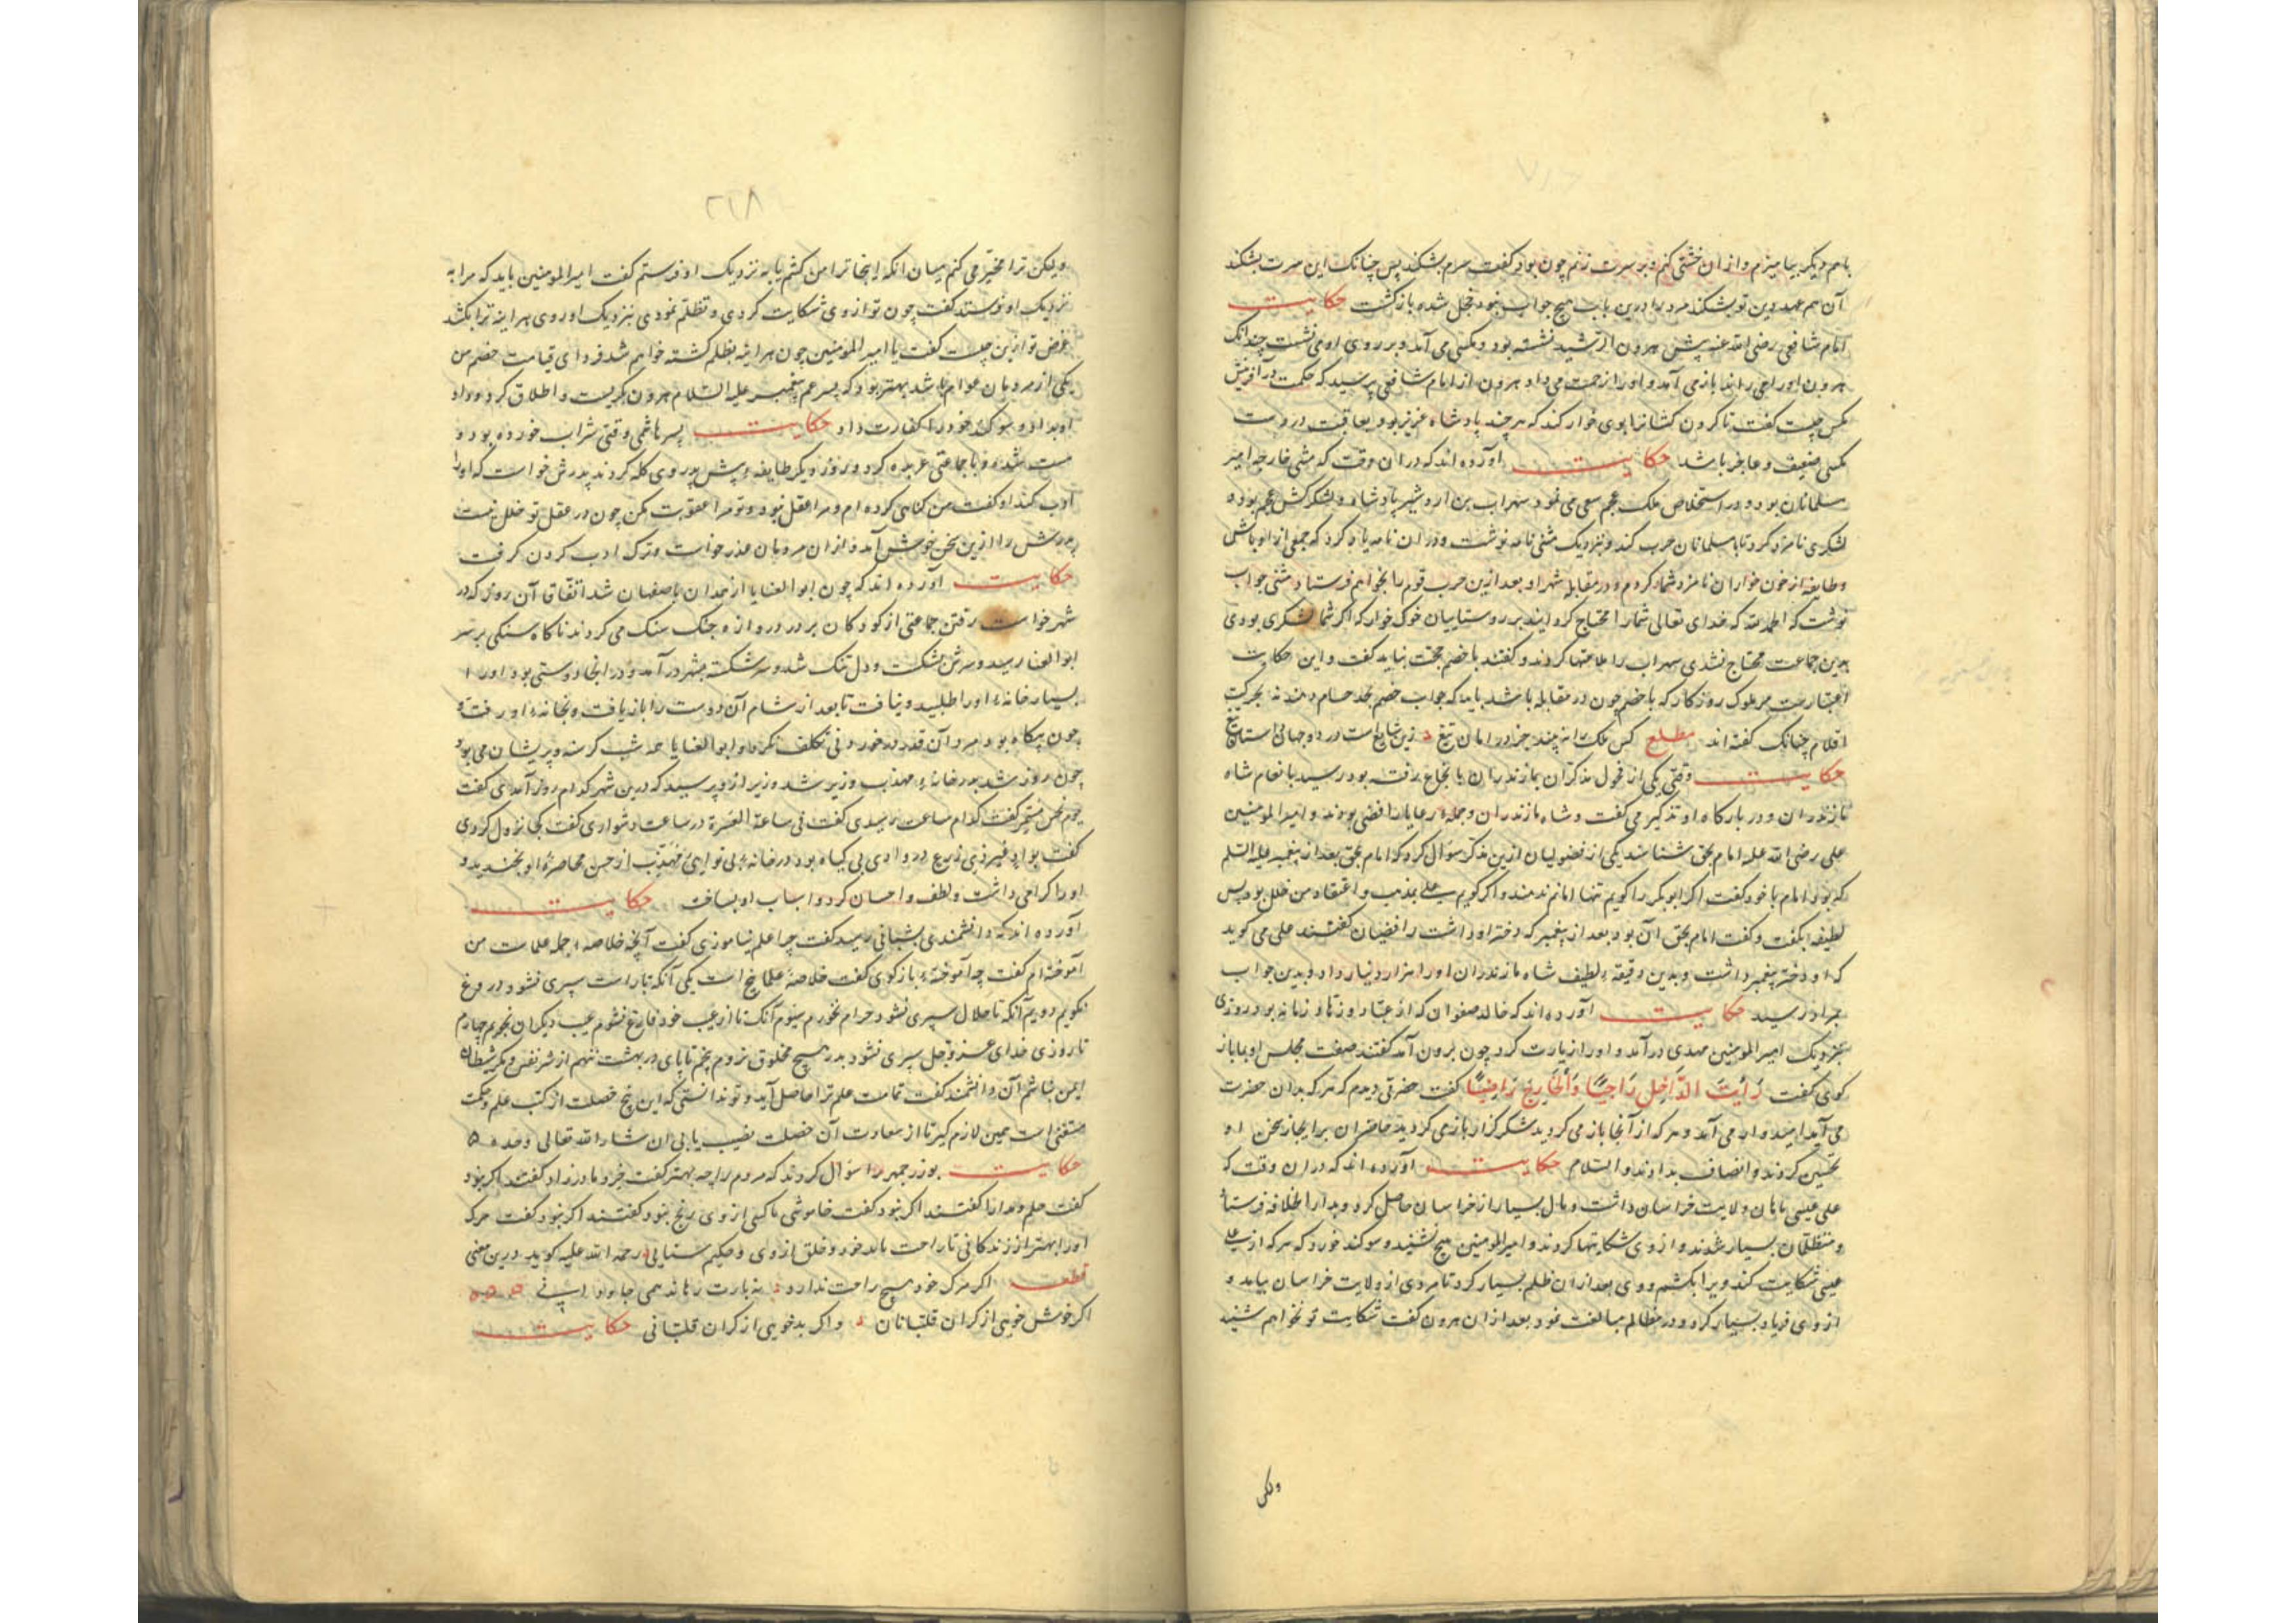 باهم دیگر بیامیزم و از ان خشتی کنم و بر سرت زنم چون بود کفت سرم بشکند پس چنانک این سرت بشکند
آن هم عهد دین تو بشکند مرد را درین باب هیچ جواب نبود خجل شده بازکشت حکایت
امام شافعی رضی الله عنه پیش هرون الرشید نشسته بود و مکسی می آمد و بر روی او می نشست چندانک
هرون او را می راند باز می آمد و او را زحمت می داد هرون از امام شافعی پرسید که حکمت در آفرینش
مکس چیست کفت تا کردن کشانرا بوی خوار کند که هر چند پادشاه عزیز بود بعاقبت در دست
مکسی ضعیف و عاجز باشد حکایت آورده اند که در ان وقت که مثنی حارثه امیر
مسلمانان بود و در استخلاص ملک عجم سعی می نمود سهراب بن اردشیر پادشاه و لشکرکش عجم بوده
لشکری نامزد کرد تا با مسلمانان حرب کند و بنزدیک مثنی نامه نوشت و در ان نامه یاد کرد که جمعی از اوباش
و طایفه از خون خواران نامزد شما کردم و در مقابله شهر او بعد ازین حرب قوم را بخواهم فرستاد مثنی جواب
نوشت که الحمد لله که خدای تعالی شما را محتاج کردانید بر روستاییان خوک خوار که اکر شما لشکری بودی
بدین جماعت محتاج نشدی سهراب را ملامتها کردند و کفتند با خصم حجت نباید کفت و این حکایت
اعتبارست مر ملوک روزکار که با خصم چون در مقابله باشد باید که جواب خصم بحد حسام دهند نه بحرکت
اقلام چنانک کفته اند مطلع کس ملک را نه پسند جز در امان تیغ زین شایع است در دو جهانی ستان تیغ
حکایت وقتی یکی از فحول مذکران بمازندران بانتجاع رفته بود رسید بانعام شاه
مازندران و در بارکاه او تذکیر می کفت و شاه مازندران و جمله رعایا رافضی بودند و امیر المومنین
علی رضی الله عنه امام بحق شناسند یکی از فضولیان ازین مذکر سؤال کرد که امام بحق بعد از پیغمبر علیه السلم
که بود امام با خود کفت اکر ابوبکر را کویم تنها امانم ندهند و اکر کویم علی بمذهب و اعتقاد من خلل بود پس
لطیفه بکفت و کفت امام بحق آن بود بعد از پیغمبر که دختر او داشت رافضیان کفتند علی می کوید
که او دختر پیغمبر داشت و بدین دقیقه لطیف شاه مازندران او را هزار دینار داد و بدین جواب
بمراد رسید حکایت آورده اند که خالد صفوان که از عباد و زهاد زمانه بود روزی
بنزدیک امیر المومنین مهدی در آمد و او را زیارت کرد چون برون آمد کفتند صفت مجلس او با ما باز
کوی کفت رَأیتَ الدَّاخِل رَاجیًا وَالخَارِجَ رَاضِیًا کفت حضرتی دیدم که هر که بدان حضرت
می آید امیدوار می آمد و هر که از آنجا باز می کردید شکرکزار باز می کردید حاضران بر ایجاز سخن او
تحسین کردند و انصاف بدادند والسلام حکایت آورده اند که در ان وقت که
علی عیسی ماهان ولایت خراسان داشت و مال بسیار از خراسان حاصل کرد و بدار الخلافه فرستاد
و متظلمان بسیار شدند و از وی شکایتها کردند و امیر المومنین هیچ نشنید و سوکند خورد که هر که از علی
عیسی شکایت کند ویرا بکشم و وی بعد از ان ظلم بسیار کرد تا مردی از ولایت خراسان بیامد و
از وی فریاد بسیار کرد و در مظالم مبالغت نمود بعد از ان هرون کفت شکایت تو نخواهم شنید
ولکن
۲۱۸
ولیکن ترا مخیر می کنم میان انکه اینجا ترا من کشم یا به نزدیک او فرستم کفت امیر المومنین باید که مرا به
نزدیک او فرستد کفت چون تو از وی شکایت کردی و تظلم نمودی بنزدیک او روی هر اینه ترا بکشد
غرض تو ازین چیست کفت یا امیر المومنین چون هر اینه بظلم کشته خواهم شد فردای قیامت خصم من
یکی از مردمان عوام باشد بهتر بود که پسر عم پیغمبر علیه السلام هرون بکریست و اطلاق کرد و داد
او بداد و سوکند خود را کفارت داد حکایت پسر هاشمی وقتی شراب خورده بود و
مست شده و با جماعتی عربده کرد و روز دیکر طایفه پیش پدر وی کله کردند پدرش خواست که او را
ادب کند او کفت من کناهی کرده ام و مرا عقل نبود و تو مرا عقوبت مکن چون در عقل تو خلل نیست
پدرش را ازین سخن خوش آمد و از ان مردمان عذر خواست و ترک ادب کردن کرفت
حکایت آورده اند که چون ابو العنایا از همدان باصفهان شد اتفاق آن روز که در
شهر خواست رفتن جماعتی از کودکان بر در دروازه جنک سنک می کردند ناکاه سنکی بر سر
ابو العنا رسید و سرش بشکست و دل تنک شد و سر شکسته بشهر در آمد و در انجا دوستی بود او را
بسیار خانهٔ او را طلبید و نیافت تا بعد از شام آن دوست را باز یافت و بخانهٔ او رفت و
چون بیکاه بود مرد آن قدر در خوردنی تکلف نکرد و ابو العنایا همه شب کرسنه و پریشان می بود
چون روز شد بدر خانهٔ مهذب وزیر شد وزیر از و پرسید که درین شهر کدام روز آمدی کفت
یوم نحس مستمر کفت کدام ساعت رسیدی کفت فی ساعة العسرة در ساعت دشواری کفت کجا نزول کردی
کفت بواد غیر ذی زرع در وادی بی کیاه بود در خانهٔ بی نوایی مهذب از حسن محاضرهٔ او بخندید و
او را کرامی داشت و لطف و احسان کرد و اسباب او بساخت حکایت
آورده اند که دانشمندی بشبانی رسید کفت چرا علم نیاموزی کفت آنچه خلاصه جمله علمست من
آموخته ام کفت چه آموختهٔ باز کوی کفت خلاصهٔ علمها پنج است یکی آنکه تا راست سپری نشود دروغ
نکویم دویم آنکه تا حلال سپری نشود حرام نخورم سیوم آنک تا از عیب خود فارغ نشوم عیب دیکران نجویم چهارم
تا روزی خدای عز و جل سپری نشود بدر هیچ مخلوق نروم پنجم تا پای در بهشت ننهم از شر نفس و مکر شیطان
ایمن نباشم آن دانشمند کفت تمامت علم ترا حاصل آید و تو ندانستی که این پنج خصلت از کتب علم و حکمت
مستغنی است همین لازم کیر تا از سعادت آن خصلت نصیب یابی ان شاء الله تعالی وحده
حکایت بوزرجمهر را سؤال کردند که مردم را چه بهتر کفت خرد مادرزاد کفتند اکر نبود
کفت حلم و مدارا کفتند اکر نبود کفت خاموشی تا کسی از وی رنج نبود کفتند اکر نبود کفت مرک
او را بهتر از زندکانی تا راحت یابد خود و خلق از وی و حکیم سنایی رحمة الله علیه کوید درین معنی
قطعه اکر مرک خود هیچ راحت ندارد نه بازت رهاند همی جاودانی
اکر خوش خویی از کران قلتبانان و اکر بدخویی از کران قلتبانی حکایت